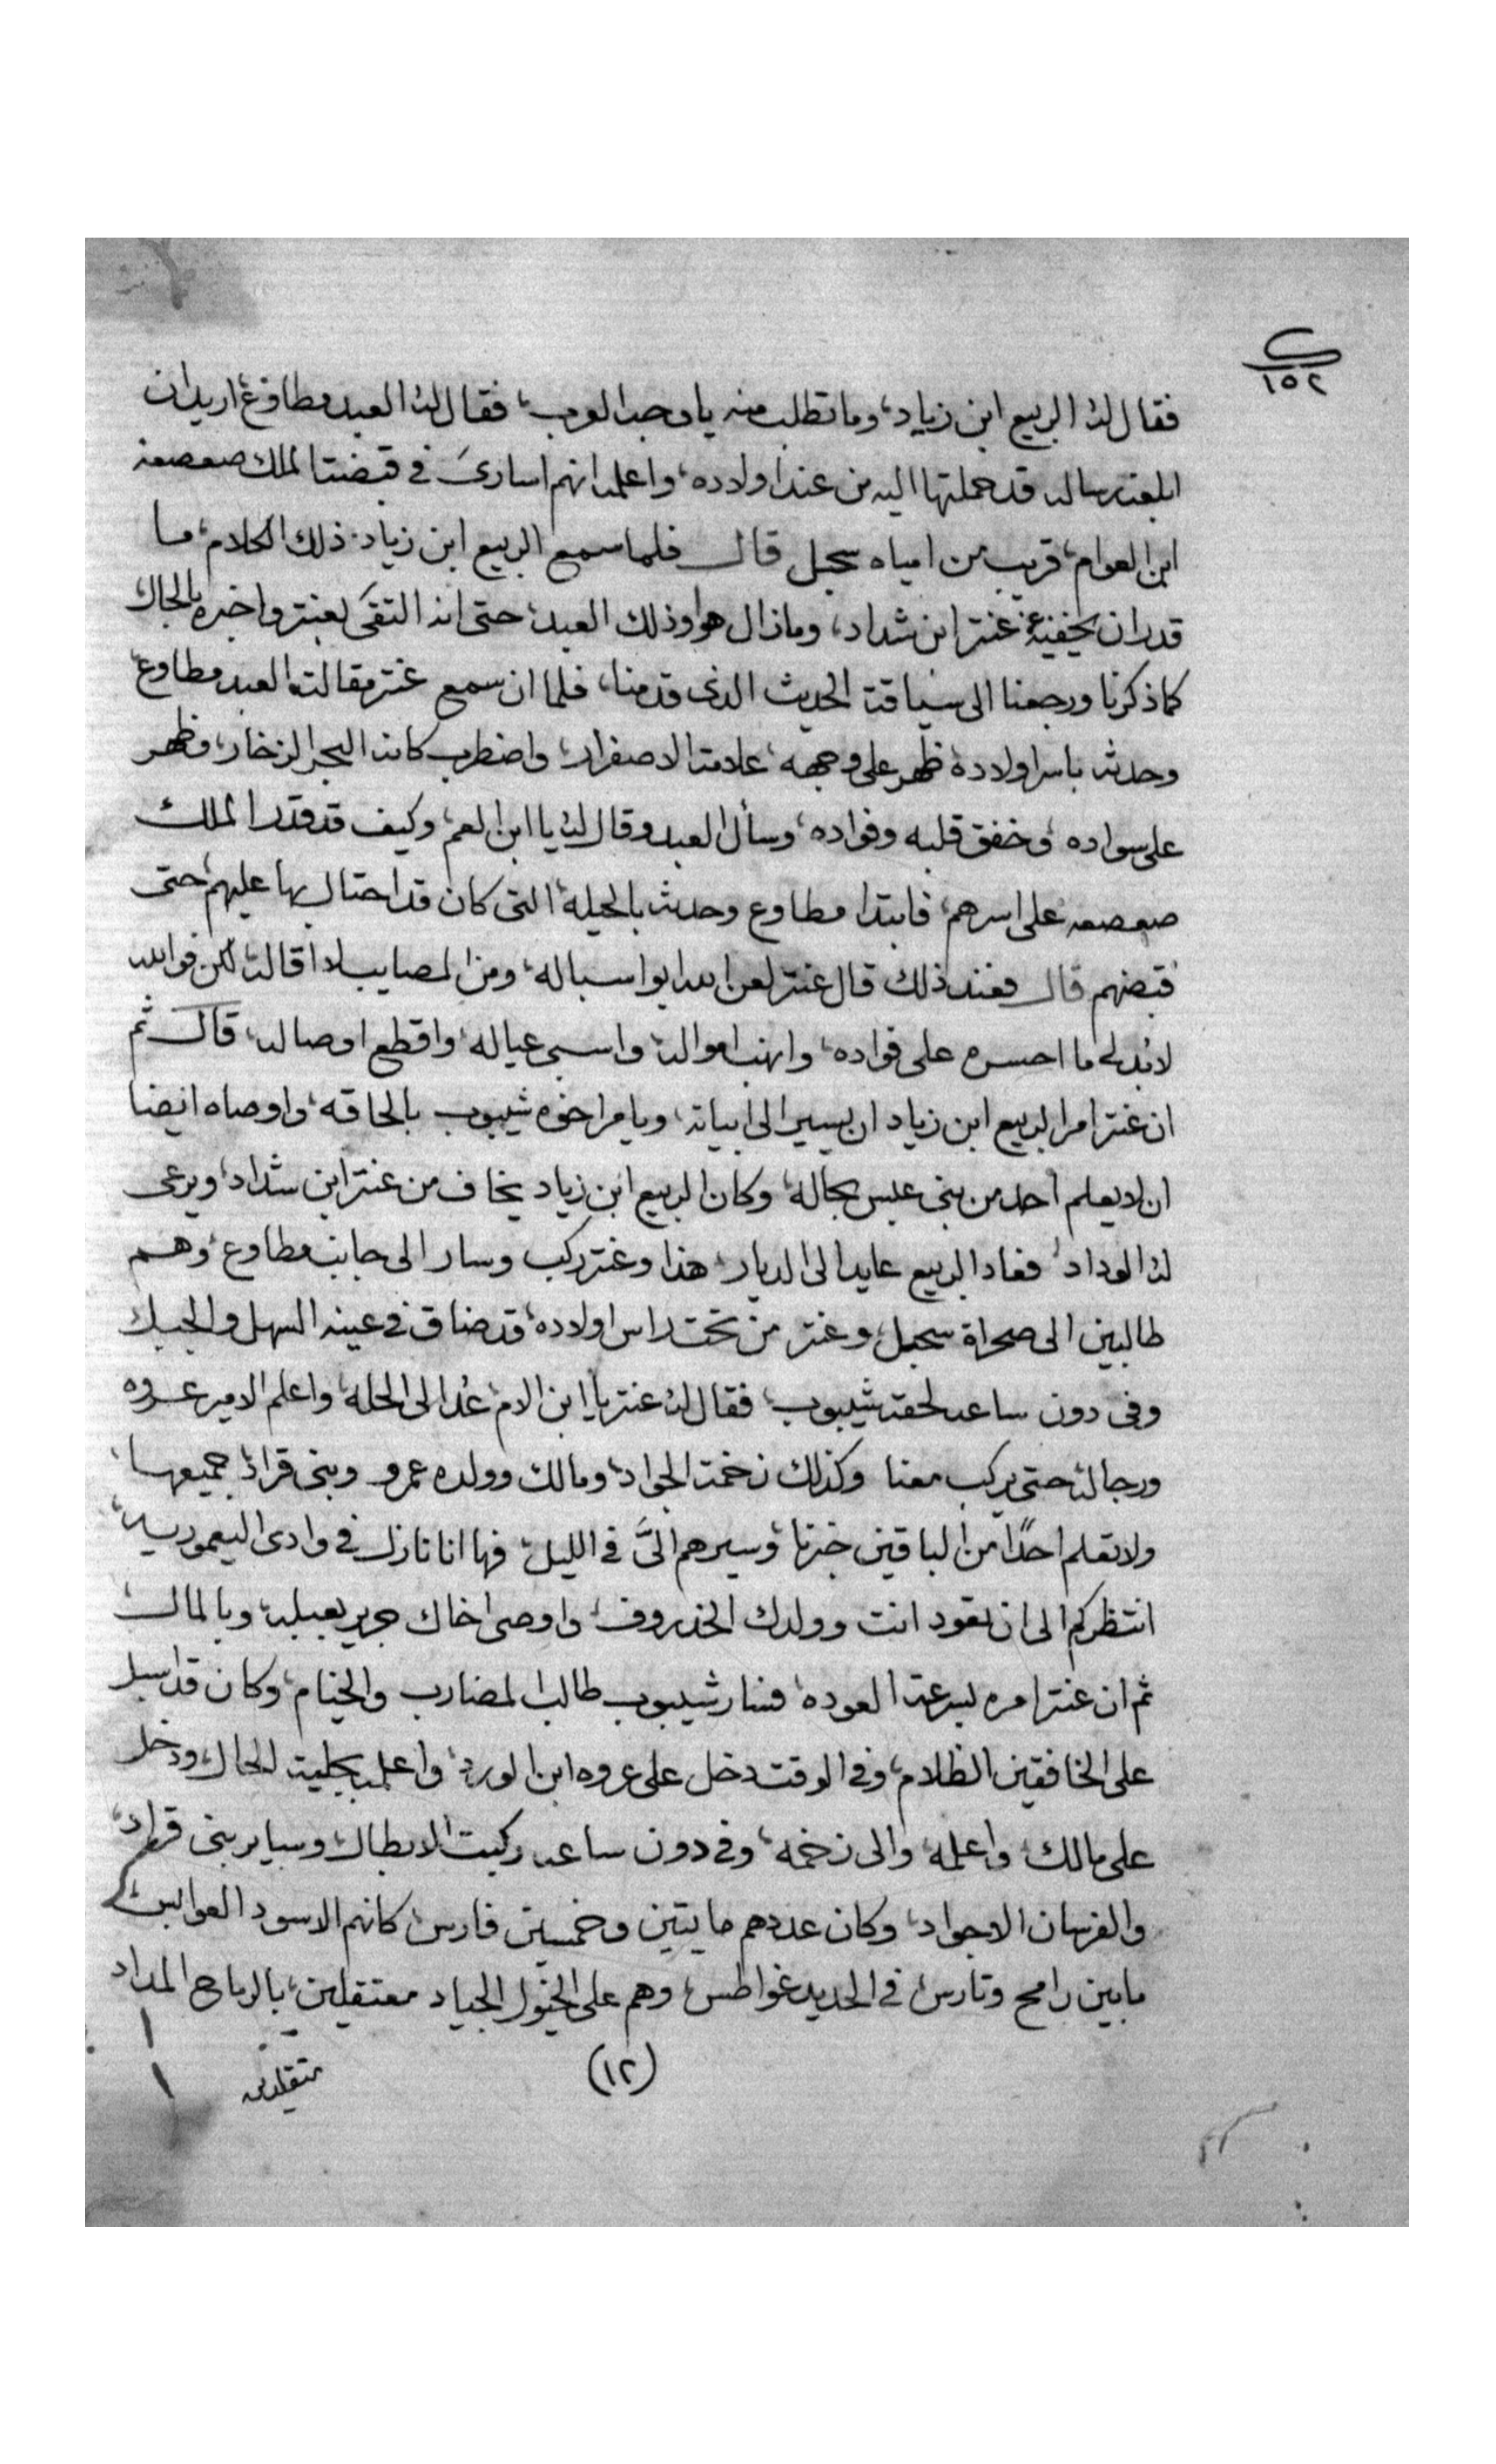 ١٥٢
فقال له الربيع ابن زياد، وما تطلب منه يا وجه العرب، فقال له العبد مطاوع، اريد ان
ابلغه رساله قد حملتها اليه من عند اولاده، واعلمه انهم اسارى في قبضت الملك صعصعه
ابن العوام، قريب من امياه سجبل قال فلما سمع الربيع ابن زياد ذلك الكلام، ما
قدر ان يخفيه عن عنتر ابن شداد، وما زال هو اوذلك العبد، حتى انه التقى بعنتر واخبره بالحال
كما ذكرنا ورجعنا الى سياقة الحديث الذى قدمنا، فلما ان سمع عنتر مقالت العبد مطاوع
وحدثه باسر اولاده، ظهر على وجهه، علامت الاصفرار، واضطرب كانه البحر الزخار، وظهر
على سواده، وخفق قلبه وفواده، وسأل العبد وقال له يا ابن العم، وكيف قد قدر الملك
صعصعه على اسرهم، فابتدا مطاوع وحدثه بالحيله، التى كان قد احتال بها عليهم، حتى
قبضهم قال فعند ذلك قال عنتر لعن الله ابوا سباله، ومن المصايب لا اقاله، لكن فوالله
لابد لى ما احسره على فواده، وانهب امواله، واسبى عياله، واقطع اوصاله، قال ثم
ان عنتر امر الربيع ابن زياد ان يسير الى ابياته، ويامر اخوه شيبوب بالحاقه، واوصاه ايضا
ان لا يعلم احد من بنى عبس بحاله، وكان الربيع ابن زياد يخاف من عنتر ابن شداد، ويرعى
له الوداد، فعاد الربيع عايدا الى الديار، هذا وعنتر ركب وسار الى جانب مطاوع، وهم
طالبين الى صحراة سجبل، وعنتر من تحت راس اولاده، قد ضاق في عينه السهل والجبل
وفى دون ساعه لحقه شيبوب، فقال له عنتر يا ابن الام، عد الى الحله، واعلم الامير عروه
ورجاله، حتى يركب معنا وكذلك زخمة الجواد، ومالك وولده عمرو وبنى قراد جميعها،
ولا تعلم احدًا من الباقين خبرنا، وسيرهم الىَّ في الليل، فها انا نازل في وادى اليعموريه،
انتظركم الى ان تعود انت وولدك الخذروف، واوصى اخاك جرير بعبله، وبالمال
ثم ان عنتر امره بسرعة العوده، فسار شيبوب طالب المضارب والخيام، وكان قد اسبل
على الخافقين الظلام، وفي الوقت دخل على عروه ابن الورد، واعلمه بجلية الحال، ودخل
على مالك، واعلمه، والى زخمه، وفي دون ساعه ركبت الابطال، وساير بنى قراد،
والفرسان الاجواد، وكان عددهم مايتين وخمسين فارس، كانهم الاسود العوابس،
ما بين رامح وتارس، في الحديد غواطس، وهم على الخيول الجياد معتقلين، بالرماح المداد
(١٢)
متقلدين